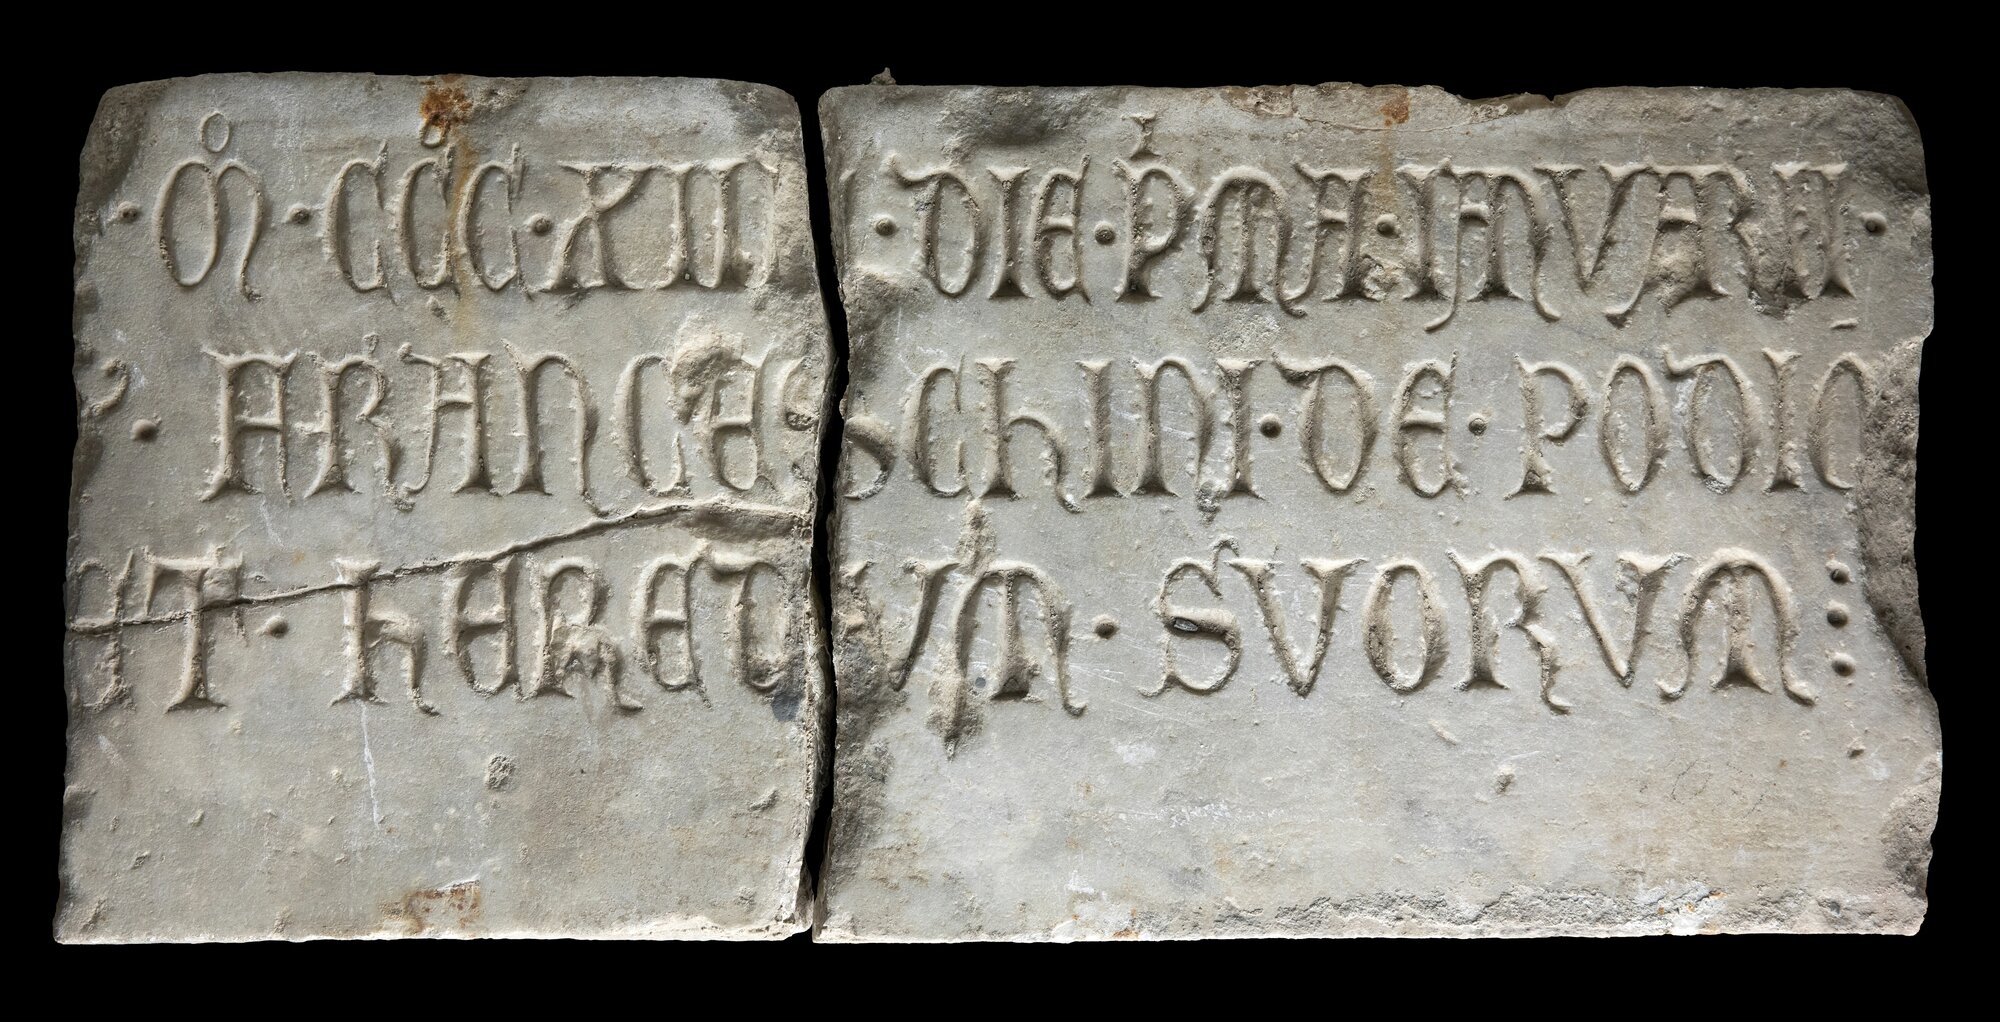 · Mº · CCCº · XIII · DIE · PiMA · IANVARII ·
· FRANCESCHINI · DE · PODIO
ET · HEREDVM · SVORVM ⋮